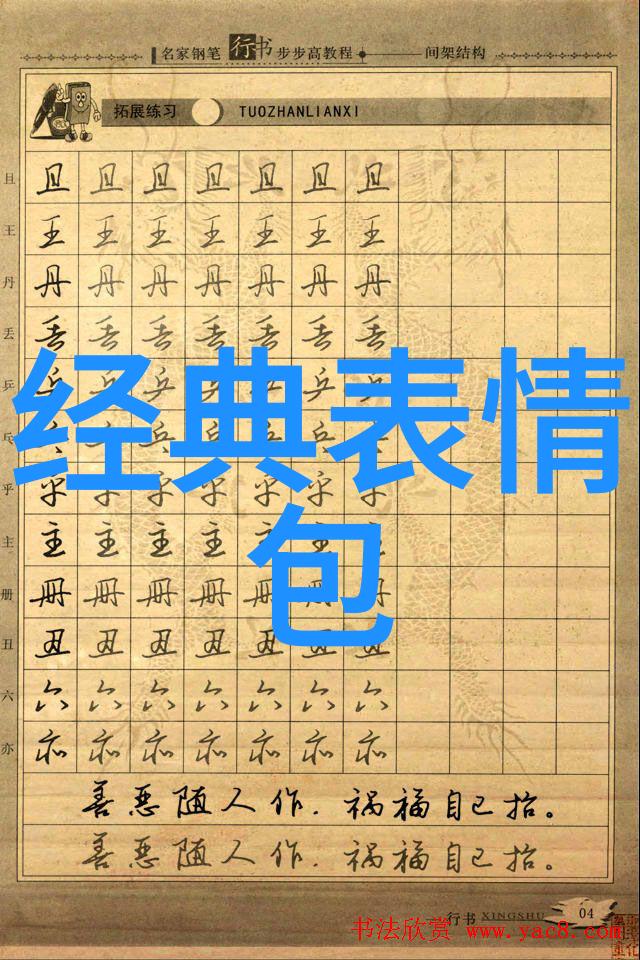 名家钢笔 行书 步步高教程 间架结构
拓展练习 TUOZHANLIANXI
且 且 且 且 且 且 且 且
王 王 王 王 王 王 王 王
丹 丹 丹 丹 丹 丹 丹 丹
丢 丢 丢 丢 丢 丢 丢 丢
乒 乒 乒 乒 乒 乒 乒 乒
经典表情
乓 乓 乓 乓 乓 乓 乓 乓
乎 乎 乎 乎 乎 乎 乎 乎
主 主 主 主 主 主 主 主
包
册 册 册 册 册 册 册 册
丑 丑 丑 丑 丑 丑 丑 丑
六 六 六 六 六 六 六 六
亦 亦 亦 亦 亦 亦 亦 亦
善恶随人作.祸福自己招。
善恶随人作.祸福自己招。
行书 XINGSHU 04
书法欣赏 www.yac8.com